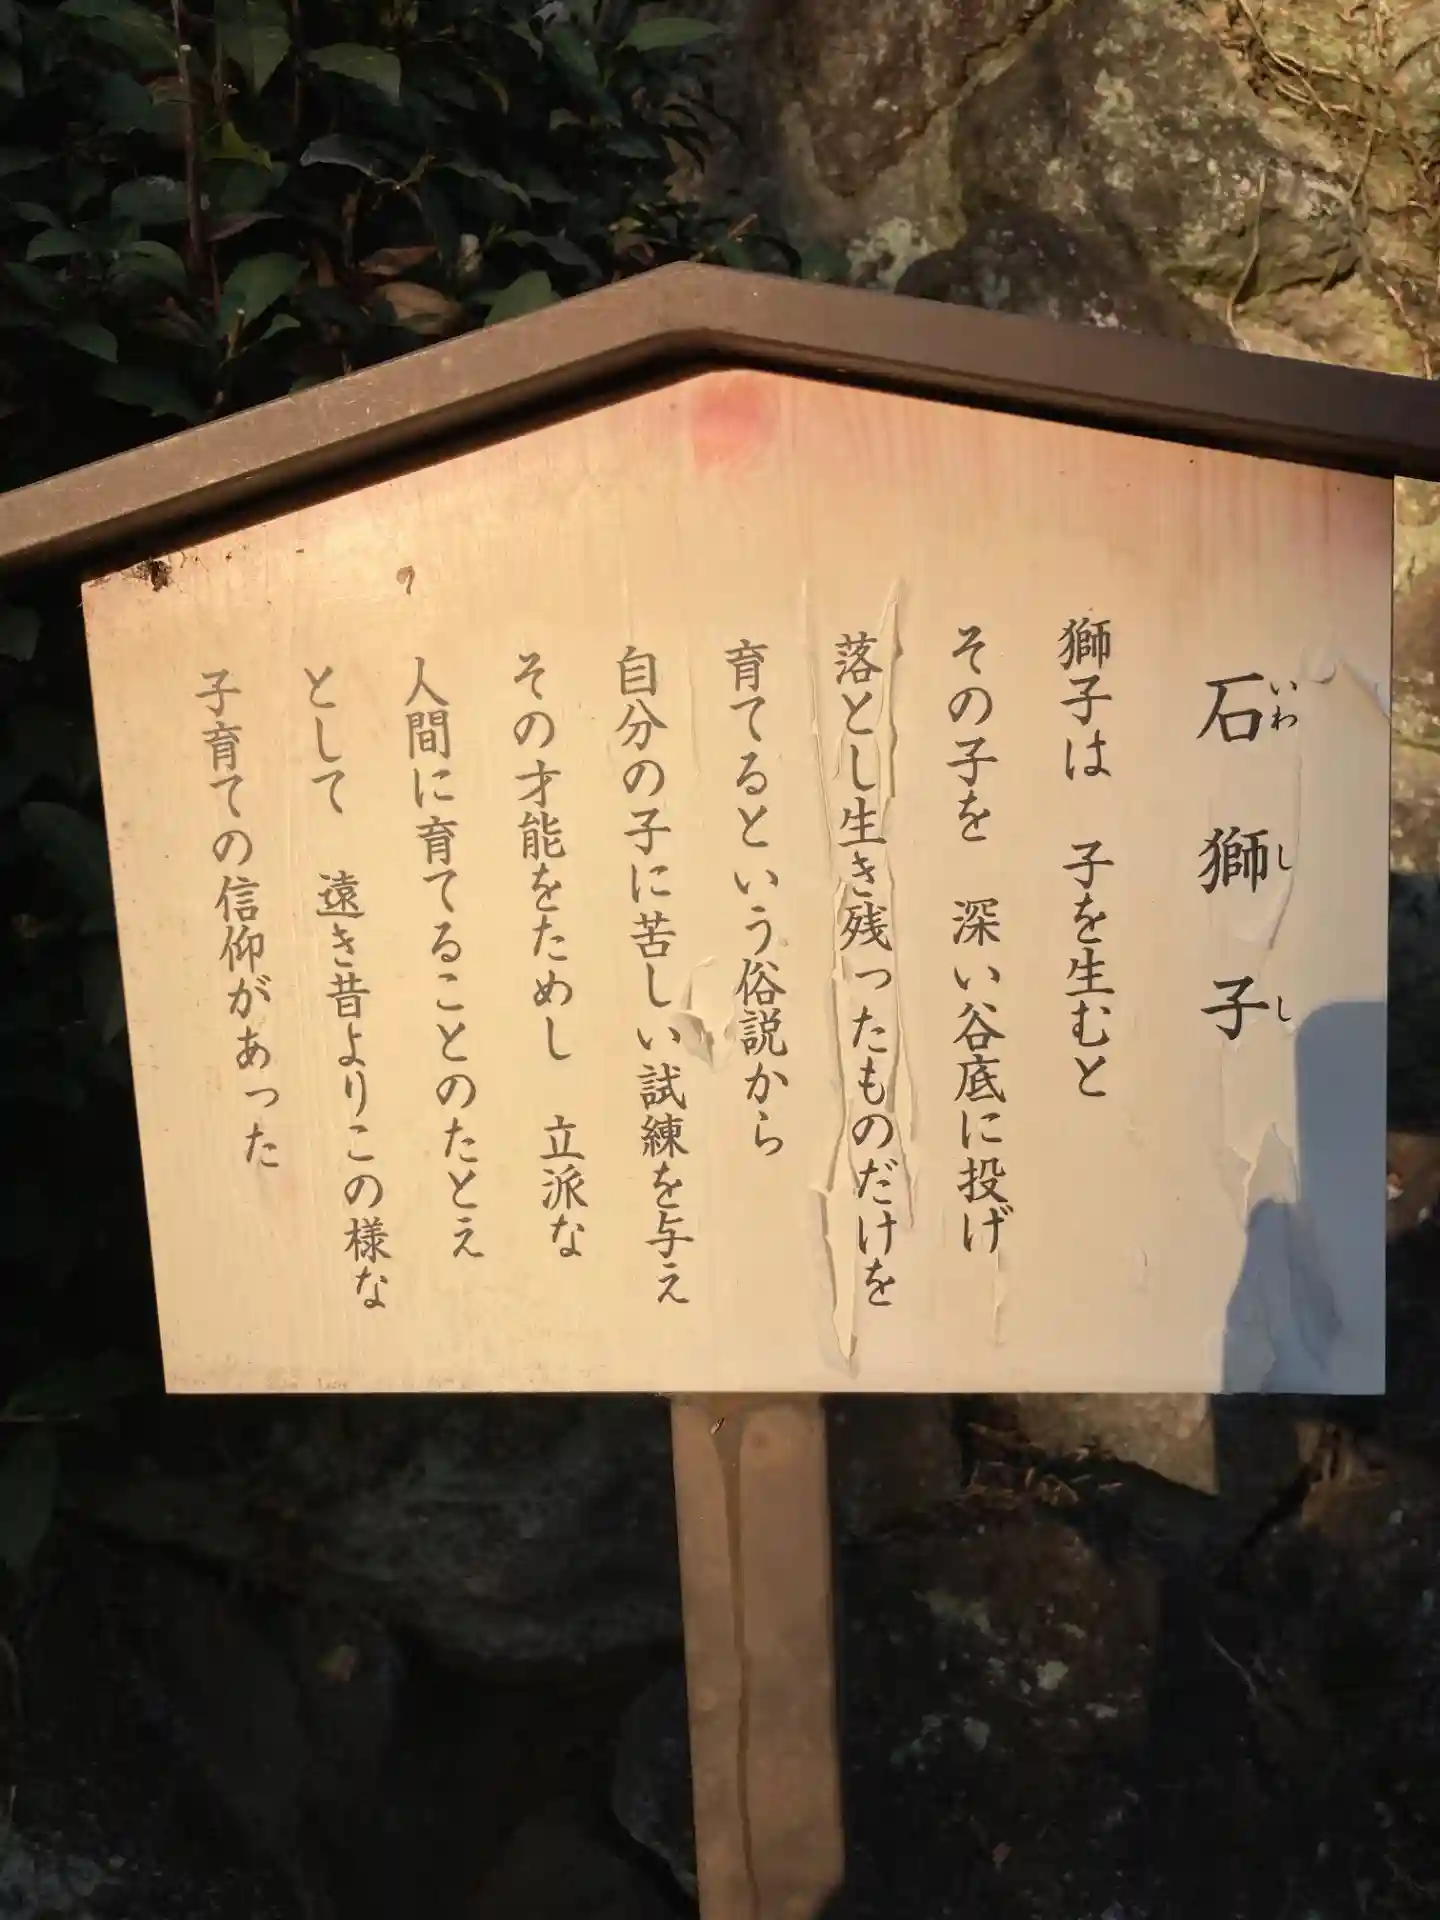 石獅子
いわしし
獅子は　子を生むと
その子を　深い谷底に投げ
落とし生き残ったものだけを
育てるという俗説から
自分の子に苦しい試練を与え
その才能をためし　立派な
人間に育てることのたとえ
として　遠き昔よりこの様な
子育ての信仰があった